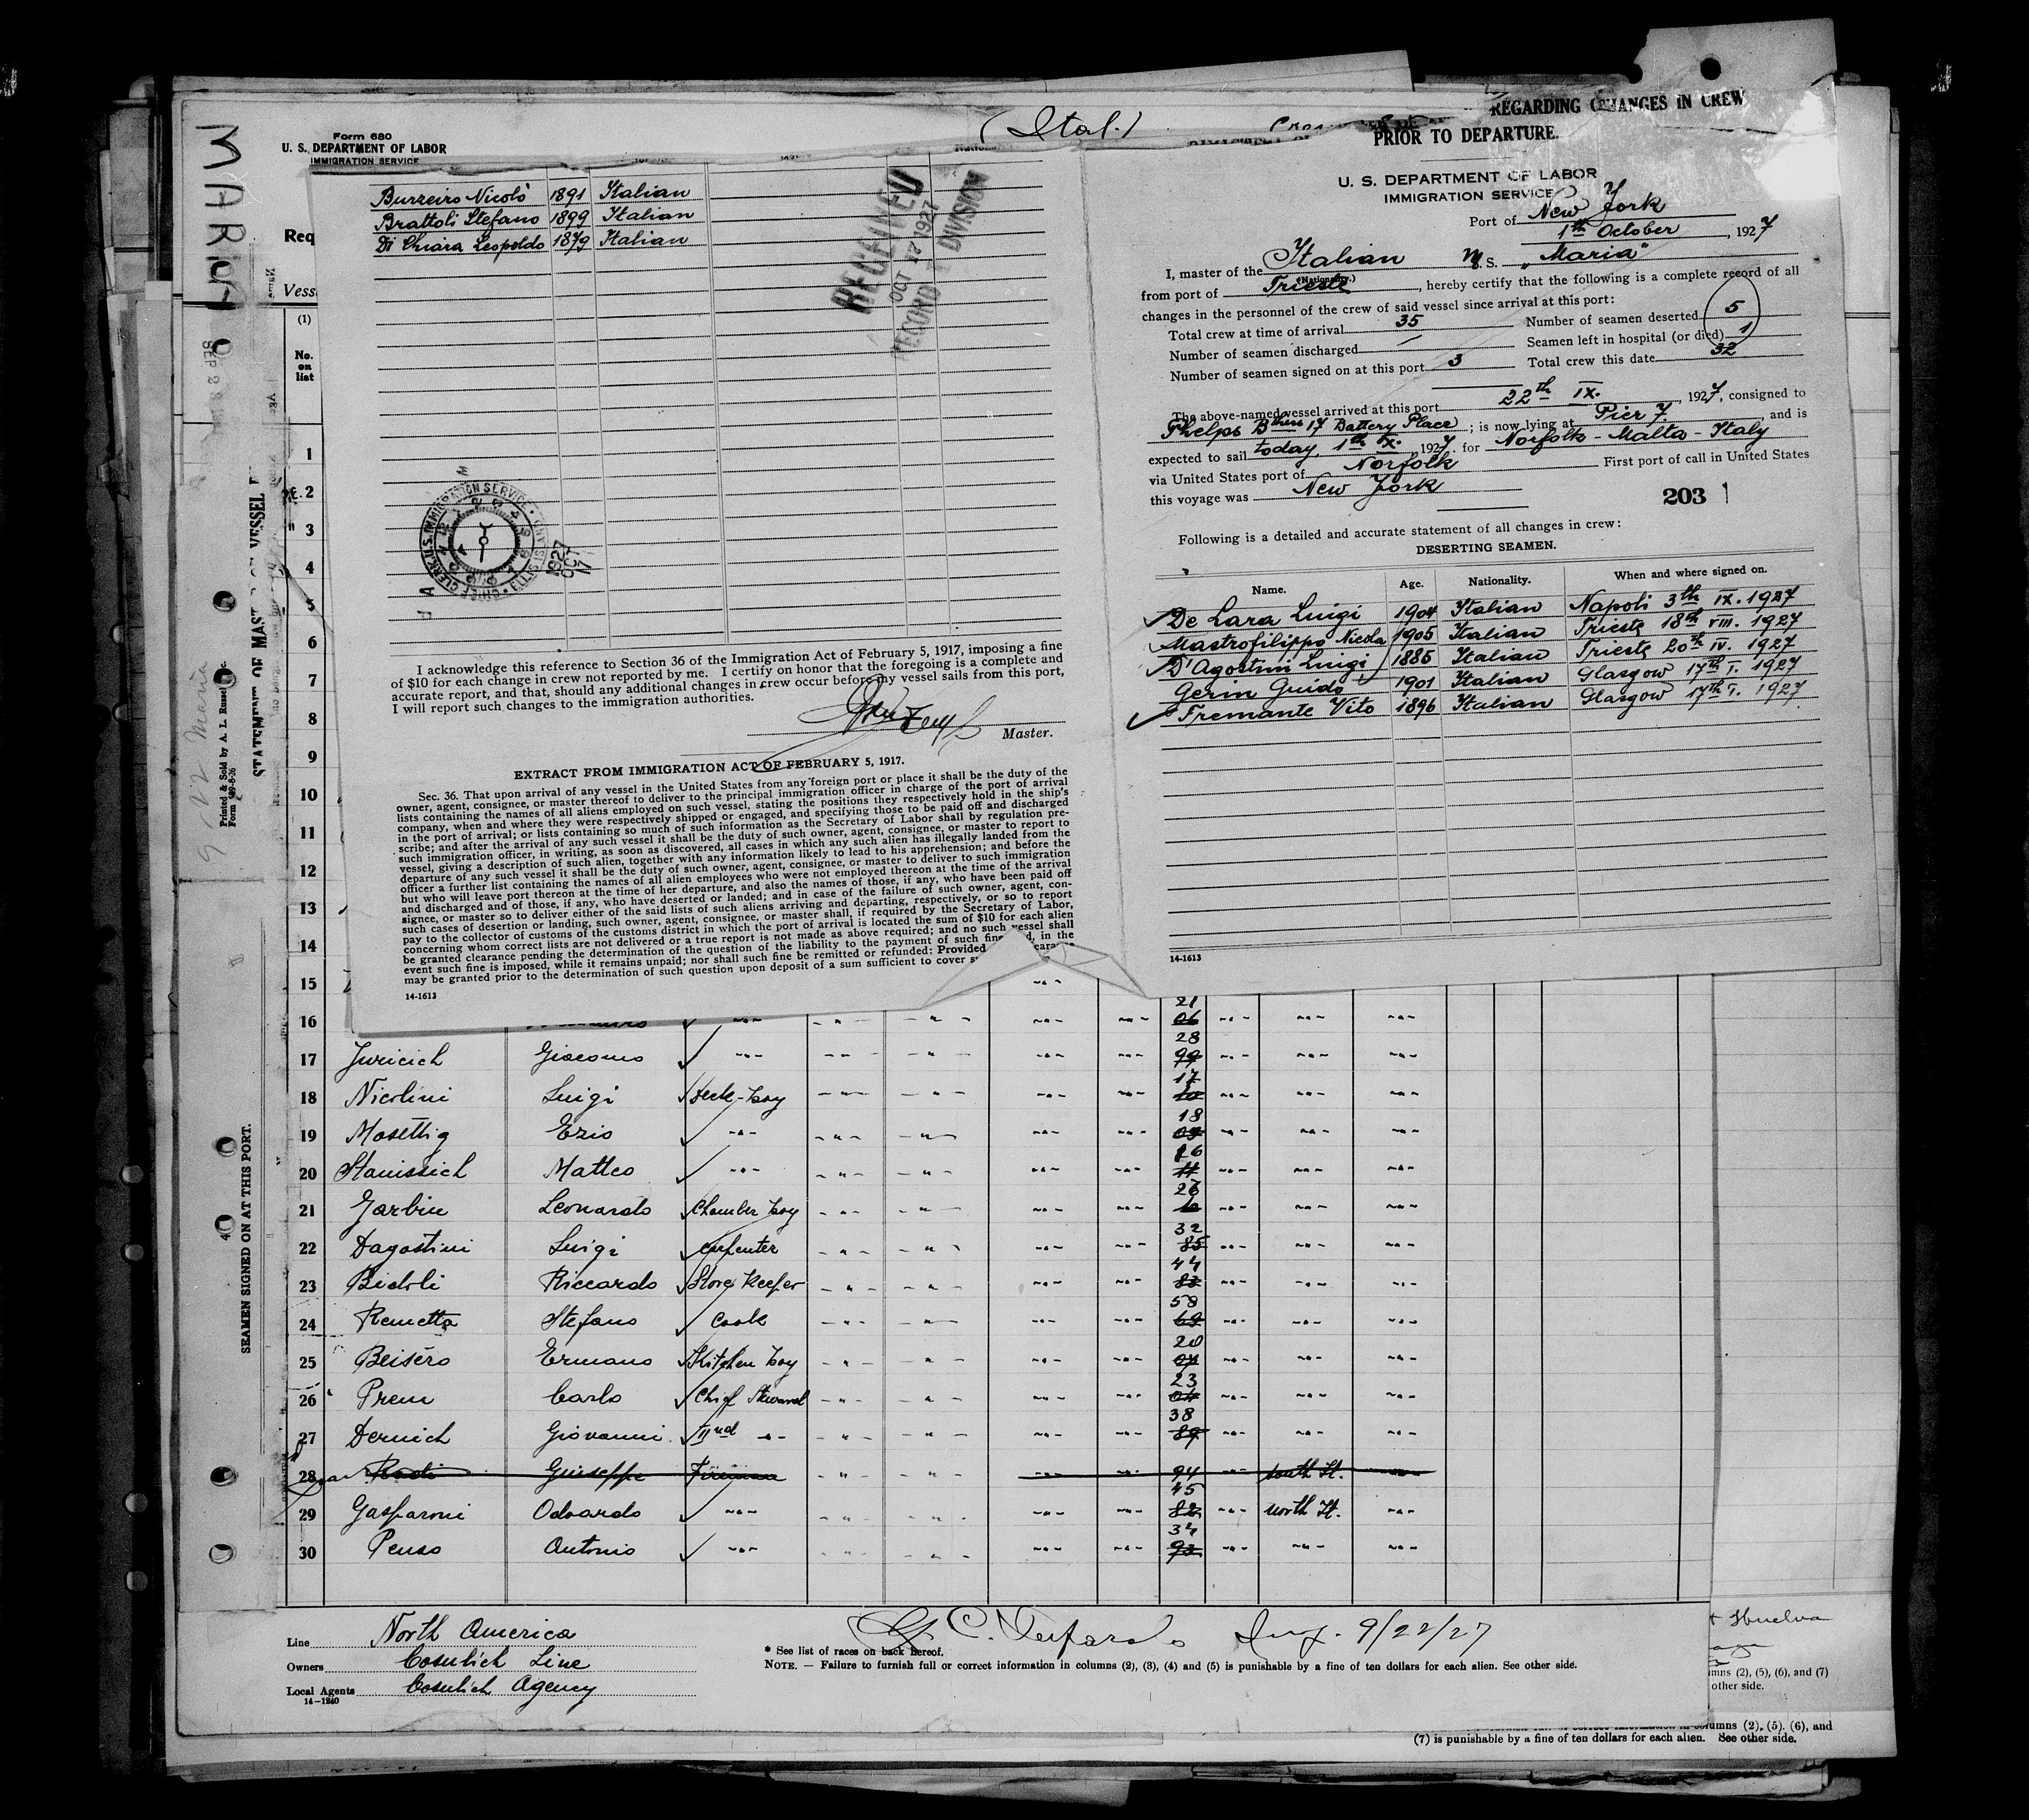 MARIA
Form 680
U. S. DEPARTMENT OF LABOR
IMMIGRATION SERVICE
(Ital.)
Req
Vess
(1)
No.
on
list
Burreiro Nicolò 1891 Italian
Brattoli Stefano 1899 Italian
Di Chiara Leopoldo 1879 Italian
RECEIVED
OCT 12 1927
RECORD DIVISION
CHIEF CLERK U.S. IMMIGRATION SERVICE • ELLIS ISLAND
1927
OCT
I acknowledge this reference to Section 36 of the Immigration Act of February 5, 1917, imposing a fine
of $10 for each change in crew not reported by me. I certify on honor that the foregoing is a complete and
accurate report, and that, should any additional changes in crew occur before my vessel sails from this port,
I will report such changes to the immigration authorities.
Master.
EXTRACT FROM IMMIGRATION ACT OF FEBRUARY 5, 1917.
Sec. 36. That upon arrival of any vessel in the United States from any foreign port or place it shall be the duty of the
owner, agent, consignee, or master thereof to deliver to the principal immigration officer in charge of the port of arrival
lists containing the names of all aliens employed on such vessel, stating the positions they respectively hold in the ship's
company, when and where they were respectively shipped or engaged, and specifying those to be paid off and discharged
in the port of arrival; or lists containing so much of such information as the Secretary of Labor shall by regulation pre-
scribe; and after the arrival of any such vessel it shall be the duty of such owner, agent, consignee, or master to report to
such immigration officer, in writing, as soon as discovered, all cases in which any such alien has illegally landed from the
vessel, giving a description of such alien, together with any information likely to lead to his apprehension; and before the
departure of any such vessel it shall be the duty of such owner, agent, consignee, or master to deliver to such immigration
officer a further list containing the names of all alien employees who were not employed thereon at the time of the arrival
but who will leave port thereon at the time of her departure, and also the names of those, if any, who have been paid off
and discharged and of those, if any, who have deserted or landed; and in case of the failure of such owner, agent, con-
signee, or master so to deliver either of the said lists of such aliens arriving and departing, respectively, or so to report
such cases of desertion or landing, such owner, agent, consignee, or master shall, if required by the Secretary of Labor,
pay to the collector of customs of the customs district in which the port of arrival is located the sum of $10 for each alien
concerning whom correct lists are not delivered or a true report is not made as above required; and no such vessel shall
be granted clearance pending the determination of the question of the liability to the payment of such fine, in the
event such fine is imposed, while it remains unpaid; nor shall such fine be remitted or refunded: Provided
may be granted prior to the determination of such question upon deposit of a sum sufficient to cover
14-1613
REGARDING CHANGES IN CREW
PRIOR TO DEPARTURE.
U. S. DEPARTMENT OF LABOR
IMMIGRATION SERVICE
Port of New York
1th October, 1927
I, master of the Italian M.S. "Maria"
(Nationality.)
from port of Trieste, hereby certify that the following is a complete record of all
changes in the personnel of the crew of said vessel since arrival at this port:
Total crew at time of arrival 35 Number of seamen deserted 5
Number of seamen discharged / Seamen left in hospital (or died) 1
Number of seamen signed on at this port 3 Total crew this date 32
The above-named vessel arrived at this port 22th IX. 1927, consigned to
Phelps Bthers 17 Battery Place; is now lying at Pier 7., and is
expected to sail today, 1th IX. 1927 for Norfolk - Malta - Italy
via United States port of Norfolk First port of call in United States
this voyage was New York
203 1
Following is a detailed and accurate statement of all changes in crew:
DESERTING SEAMEN.
Name. Age. Nationality. When and where signed on.
De Lara Luigi 1904 Italian Napoli 3th IX. 1927
Mastrofilippo Nicola 1905 Italian Trieste 18th VIII. 1927
D'Agostini Luigi 1885 Italian Trieste 20th IV. 1927
Gerin Guido 1901 Italian Glasgow 17th I. 1927
Fremante Vito 1896 Italian Glasgow 17th I. 1927
14-1613
9/22 Maria
Printed & Sold by A. L. Russel
STATEMENT OF MAST OF VESSEL
SEAMEN SIGNED ON AT THIS PORT.
1
2
3
4
5
6
7
8
9
10
11
12
13
14
15
16 21 06
17 Juricich Giacomo 28 99
18 Nicolini Luigi Deck-boy 17 10
19 Mosettig Ezio 18 09
20 Stanissich Matteo 16 11
21 Garbin Leonardo Chamber boy 26
22 Dagostini Luigi Carpenter 32 85
23 Bidoli Riccardo Store Keeper 44 83
24 Remetta Stefano Cook 58 69
25 Beisero Ermano Kitchen boy 20 07
26 Prem Carlo Chief Steward 23 04
27 Dernich Giovanni IInd 38 89
28 Rodi Giuseppe Fireman 94 South St.
29 Gasparoni Odoardo 45 82 North St.
30 Penso Antonio 34 93
Line North America
Owners Cosulich Line
Local Agents Cosulich Agency
14-1240
9/22/27
* See list of races on back hereof.
NOTE. — Failure to furnish full or correct information in columns (2), (3), (4) and (5) is punishable by a fine of ten dollars for each alien. See other side.
Huelva
mns (2), (5), (6), and (7)
other side.
columns (2), (5), (6), and
(7) is punishable by a fine of ten dollars for each alien. See other side.